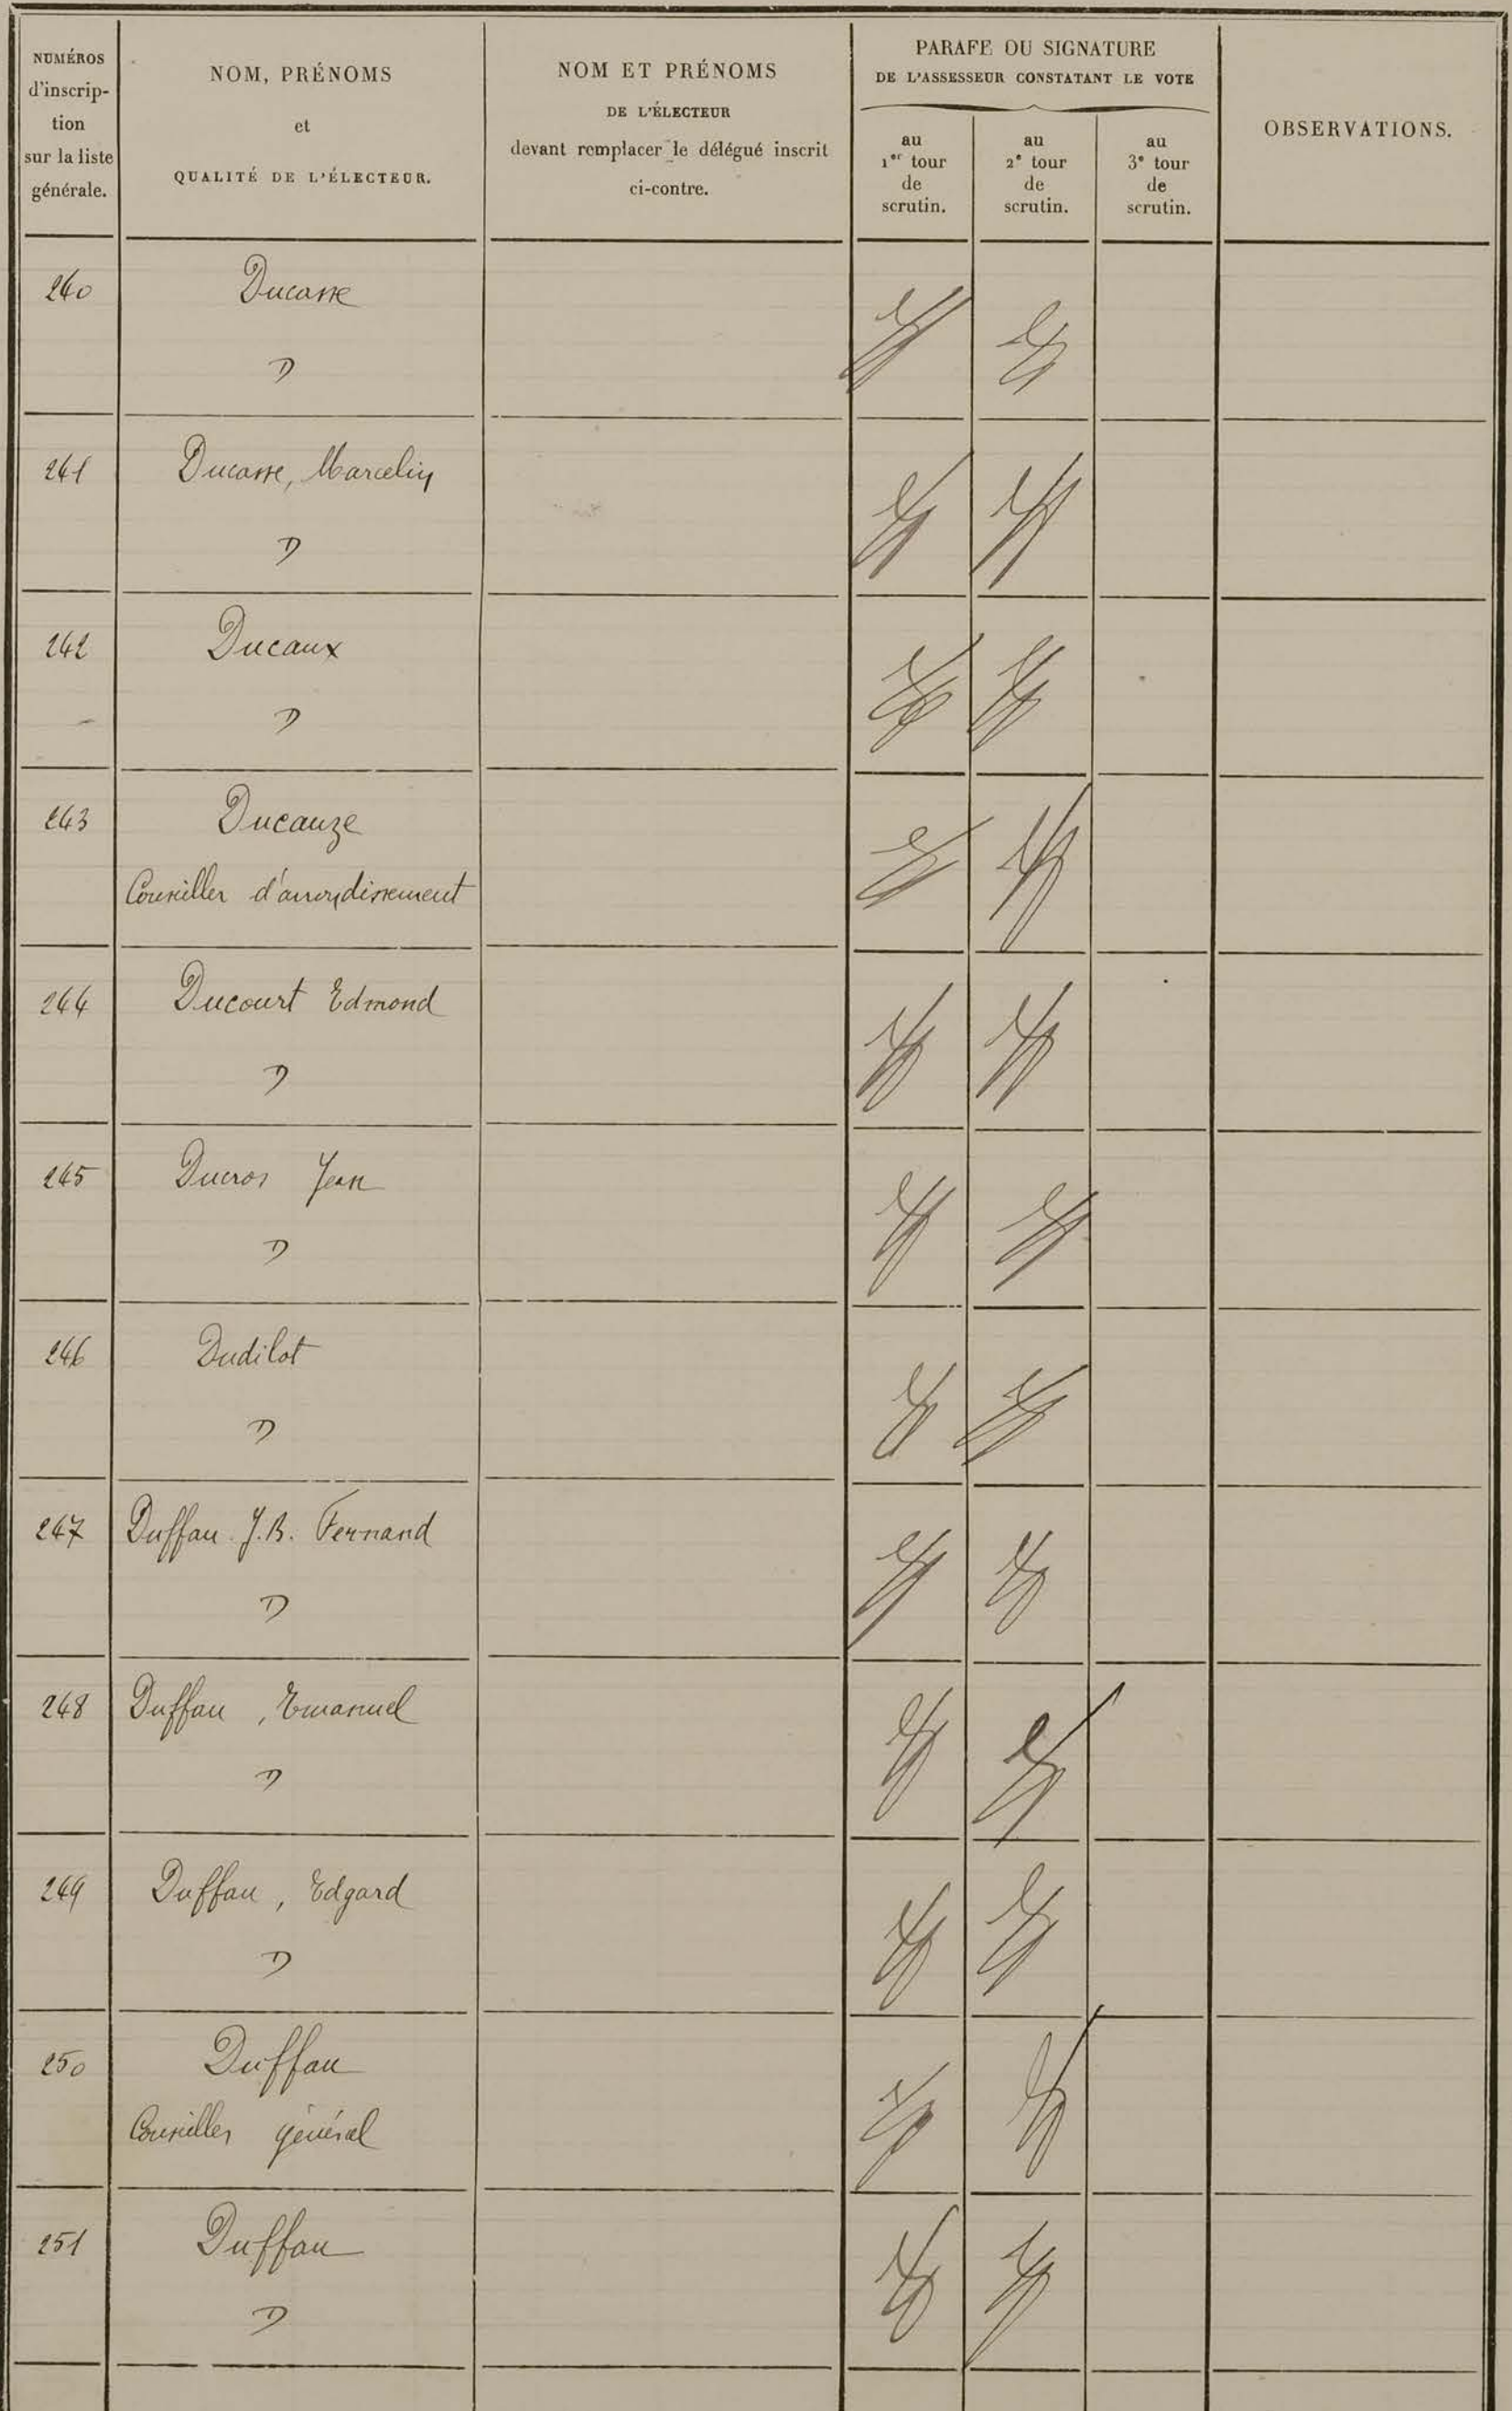 NUMÉROS
d'inscrip-
tion
sur la liste
générale.
NOM, PRÉNOMS
et
QUALITÉ DE L'ÉLECTEUR.
NOM ET PRÉNOMS
DE L'ÉLECTEUR
devant remplacer le délégué inscrit
ci-contre.
PARAFE OU SIGNATURE
DE L'ASSESSEUR CONSTATANT LE VOTE
au
1er tour
de
scrutin.
au
2e tour
de
scrutin.
au
3e tour
de
scrutin.
OBSERVATIONS.
240 Ducasse
D
241 Ducasse, Marcelin
D
242 Ducaux
D
243 Ducauze
Conseiller d'arrondissement
244 Ducourt Edmond
D
245 Ducros Jean
D
246 Dudilot
D
247 Duffau J.B. Fernand
D
248 Duffau, Emanuel
D
249 Duffau, Edgard
D
250 Duffau
Conseiller général
251 Duffau
D